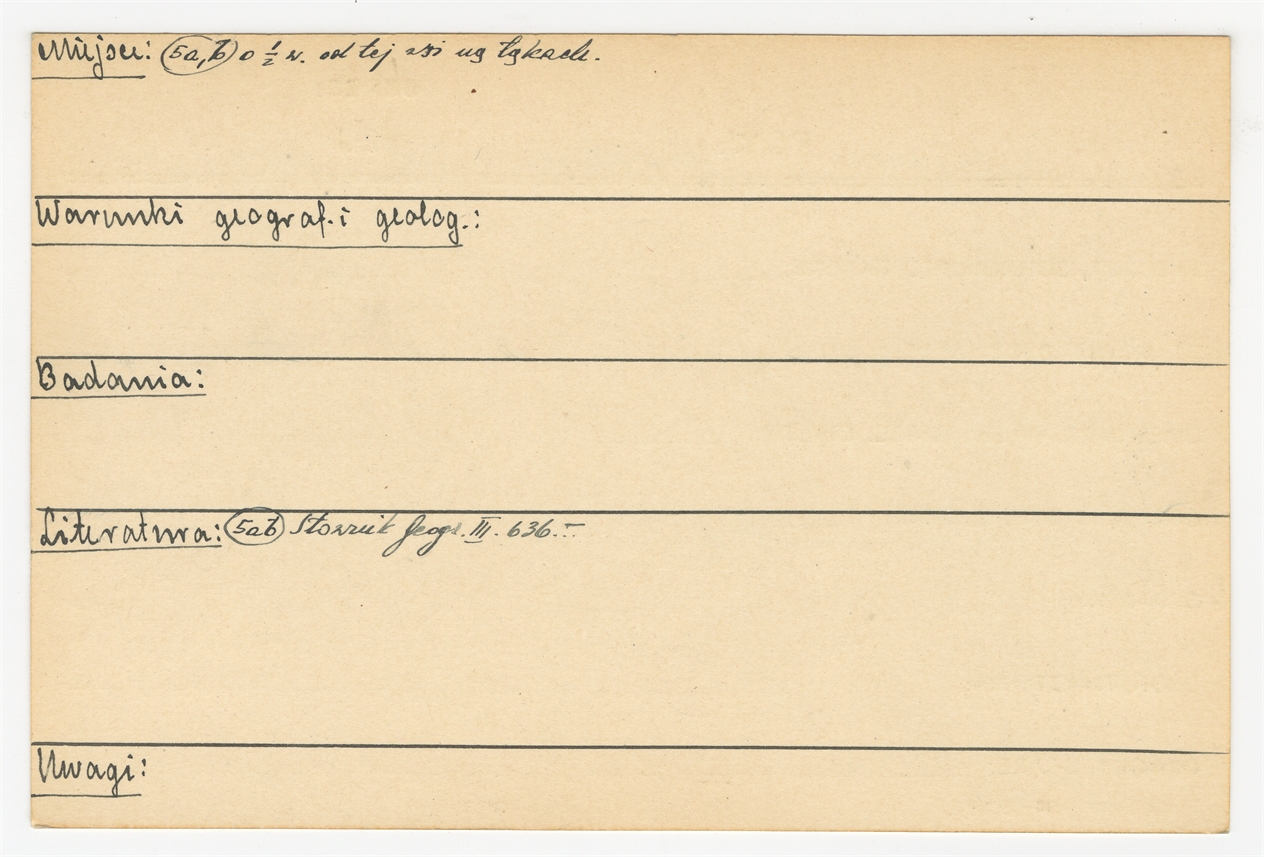 Miejsce: (5a,b) o ½ w. od tej wsi na łąkach.
Warunki geograf. i geolog.:
Badania:
Literatura: (5ab) Słownik Geogr. III. 636.
Uwagi: